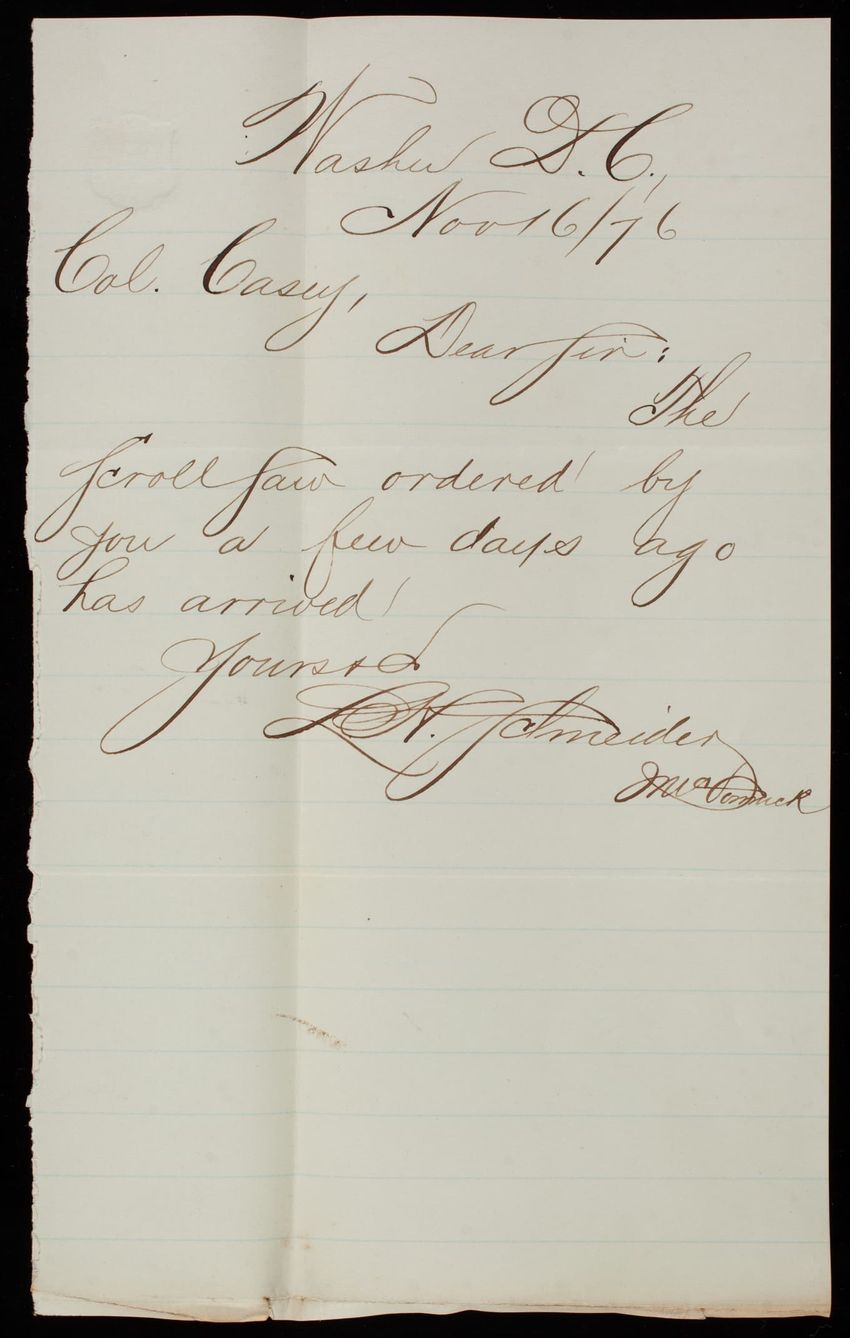 Washn D.C.,
Nov 16/76
Col. Casey,
Dear Sir:
The
Scroll Saw ordered by
you a few days ago
has arrived
Yours &c
L. H. Schneider
McCormick